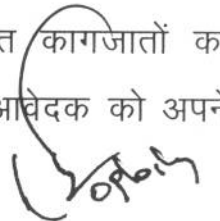 त कागजातों क
आवेदक को अपने